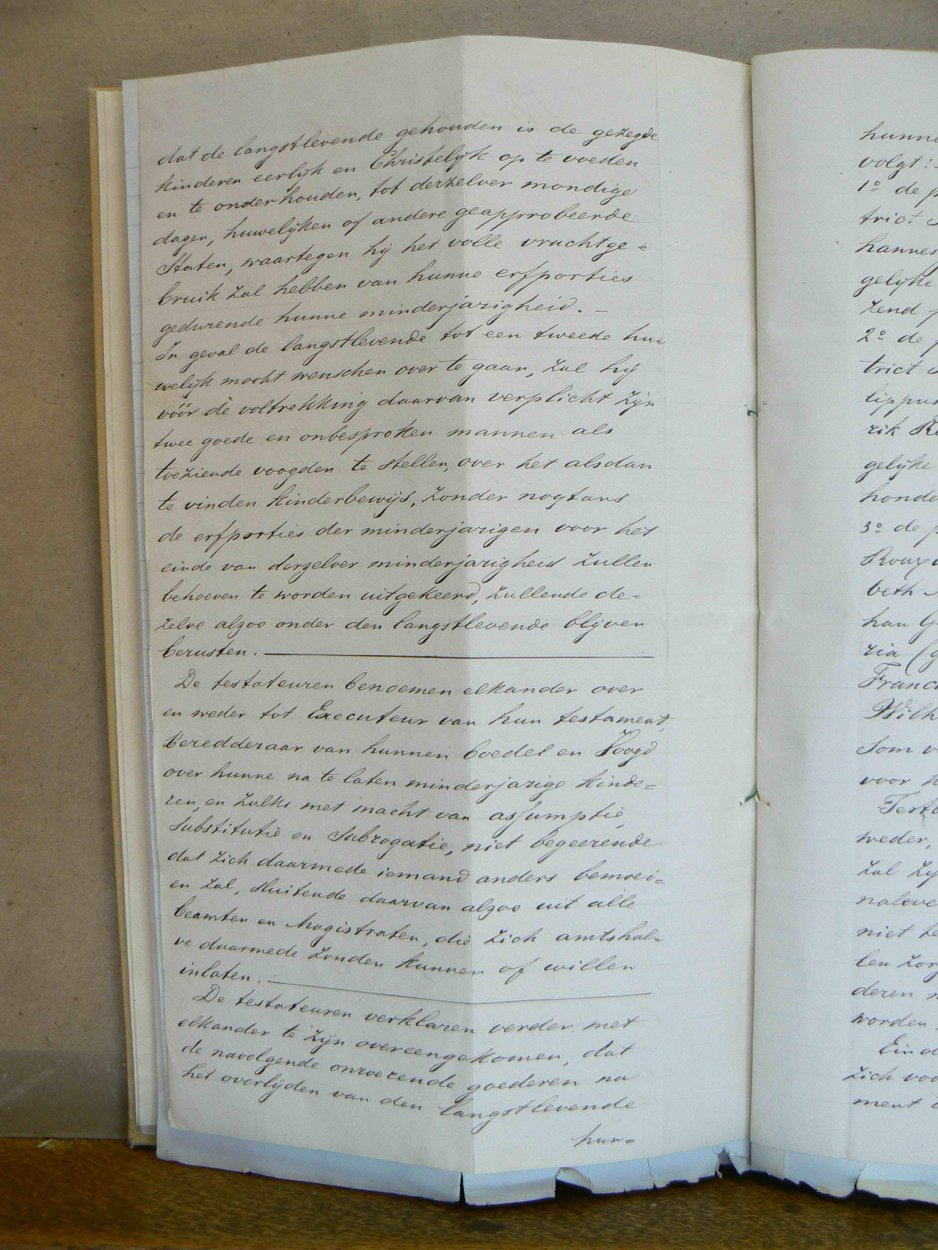 dat de langstlevende gehouden is de gezegde
kinderen eerlijk en Christelijk op te voeden
en te onderhouden, tot derzelver mondige
dagen, huwelijken of andere geapprobeerde
Staten, waartegen hij het volle vruchtge=
bruik zal hebben van hunne erfporties
gedurende hunne minderjarigheid. —
In geval de langstlevende tot een tweede hu=
welijk mocht wenschen over te gaan, zal hij
vóór de voltrekking daarvan verplicht zijn
twee goede en onbesproken mannen als
toeziende voogden te stellen over het alsdan
te vinden kinderbewijs, zonder nogtans
de erfporties der minderjarigen voor het
einde van derzelver minderjarigheid zullen
behoeven te worden uitgekeerd, zullende de=
zelve alzoo onder den langstlevende blijven
berusten. —
De testateuren benoemen elkander over
en weder tot Executeur van hun testament,
Beredderaar van hunnen boedel en Voogd
over hunne na te laten minderjarige kinde=
ren, en zulks met macht van assumptie,
Substitutie en Subrogatie, niet begeerende
dat zich daarmede iemand anders bemoei=
en zal, sluitende daarvan alzoo uit alle
beamten en Magistraten, die zich amtshal=
ve daarmede zouden kunnen of willen
inlaten. —
De testateuren verklaren verder met
elkander te zijn overeengekomen, dat
de navolgende onroerende goederen na
het overlijden van den langstlevende
hun=
hunne
volgt:
1º de p
trict
hannes
gelijke
zend
2º de p
trict
lippus
rik
gelijke
honde
3º de p
Roux
beth
han
ria
Franc
Wilh
Som v
voor
Test
weder,
zal zij
naleve
niet
len zor
deren
worden
Eind
zich voo
ment